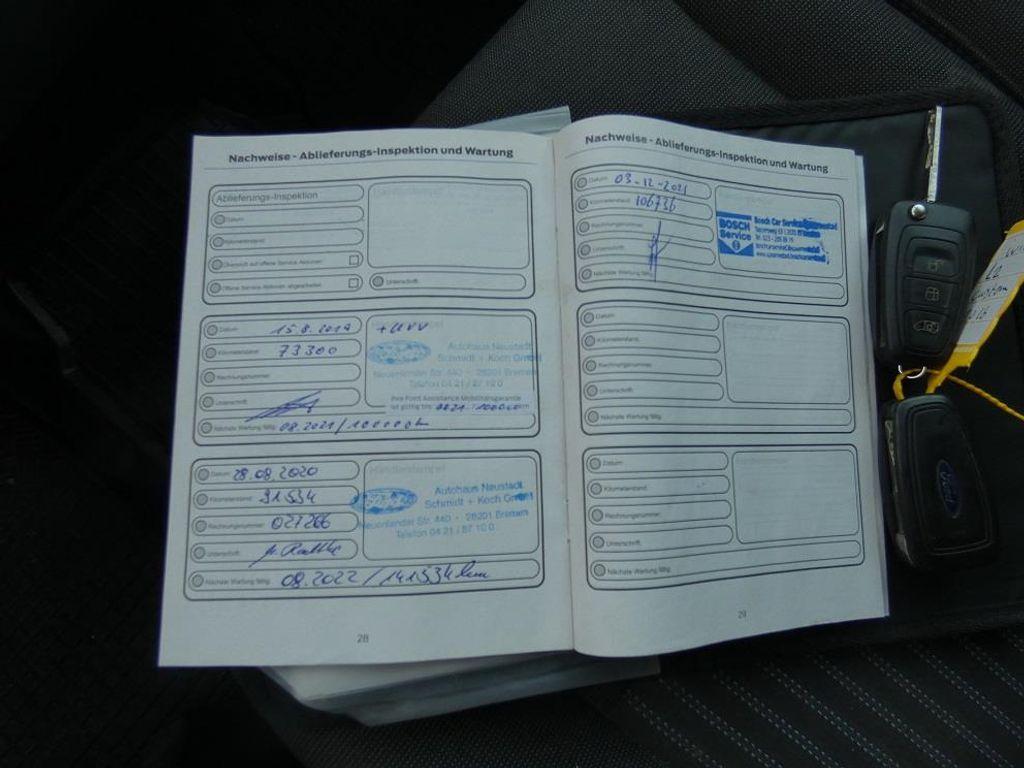 Nachweise - Ablieferungs-Inspektion und Wartung
Ablieferungs-Inspektion
Datum:
Kilometerstand:
Übersicht auf offene Service Aktionen:
Offene Service Aktionen abgearbeitet:
Unterschrift:
Datum: 15.8.2019
Kilometerstand: 73300
Rechnungsnummer:
Unterschrift:
Nächste Wartung fällig:
+ UVV
Autohaus Neustadt
Schmidt + Koch GmbH
Neuenlander Str. 440 - 28201 Bremen
Telefon 04 21 / 87 10 0
Ihre Ford Assistance Mobilitätsgarantie
ist gültig bis:
Datum: 28.08.2020
Kilometerstand: 81534
Rechnungsnummer: 027266
Unterschrift:
Nächste Wartung fällig: 08.2022 / 141534km
Händlerstempel
Autohaus Neustadt
Schmidt + Koch GmbH
Neuenlander Str. 440 - 28201 Bremen
Telefon 04 21 / 87 10 0
28
Nachweise - Ablieferungs-Inspektion und Wartung
Datum: 03-12-2021
Kilometerstand: 106736
Rechnungsnummer:
Unterschrift:
Nächste Wartung fällig:
BOSCH
Service
Bosch Car Service
Datum:
Kilometerstand:
Rechnungsnummer:
Unterschrift:
Nächste Wartung fällig:
Datum:
Kilometerstand:
Rechnungsnummer:
Unterschrift:
Nächste Wartung fällig:
29
Ford